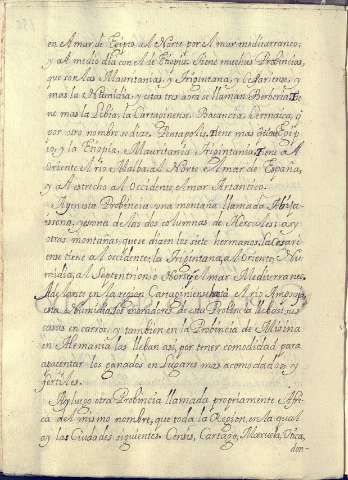 en el mar de Egipto, al Norte por el mar mediterraneo;
y al medio dia con el de Etiopia. tiene muchas Probincias,
que son las Mauritanias, y tingintana, y Cesariense, y
mas la Numidia; y estas tres aora se llaman Berberia. tie
ne mas la Libia, la Carthoinense, Bacancia, Cernaica, q̃
por otro nombre se dize, Pentapolis. tiene mas Egip
to, y la Etiopia, Mauritania tingintania. tiene al
Oriente el rio Malba, al Norte el mar de España,
y el estrecho al Occidente el mar Atlantico.
Ay en esta Probincia una montaña llamada Abila
y es una de las dos columnas de Hercules: ay
otras montañas, que se dizen los siete hermanos. la Cesari
ense tiene al occidente, la tingintana, al Oriente, Nu
midia, al Septentrion, o Norte, el mar Mediterraneo.
Adelante en la region el rio
esta Numidia, los moradores de esta Probincia lleban sus
casas en carros; y tambien en la Probincia de
en Alemania las lleban asi, por tener comodidad para
apacentar los ganados en lugares mas acomodados, y
fertiles.
Ay luego otra Probincia llamada propriamente Affri
ca del mismo nombre, que toda la Region, en la qual
ay las Ciudades siguientes. Cartago, Maxuela, Utica,
don-